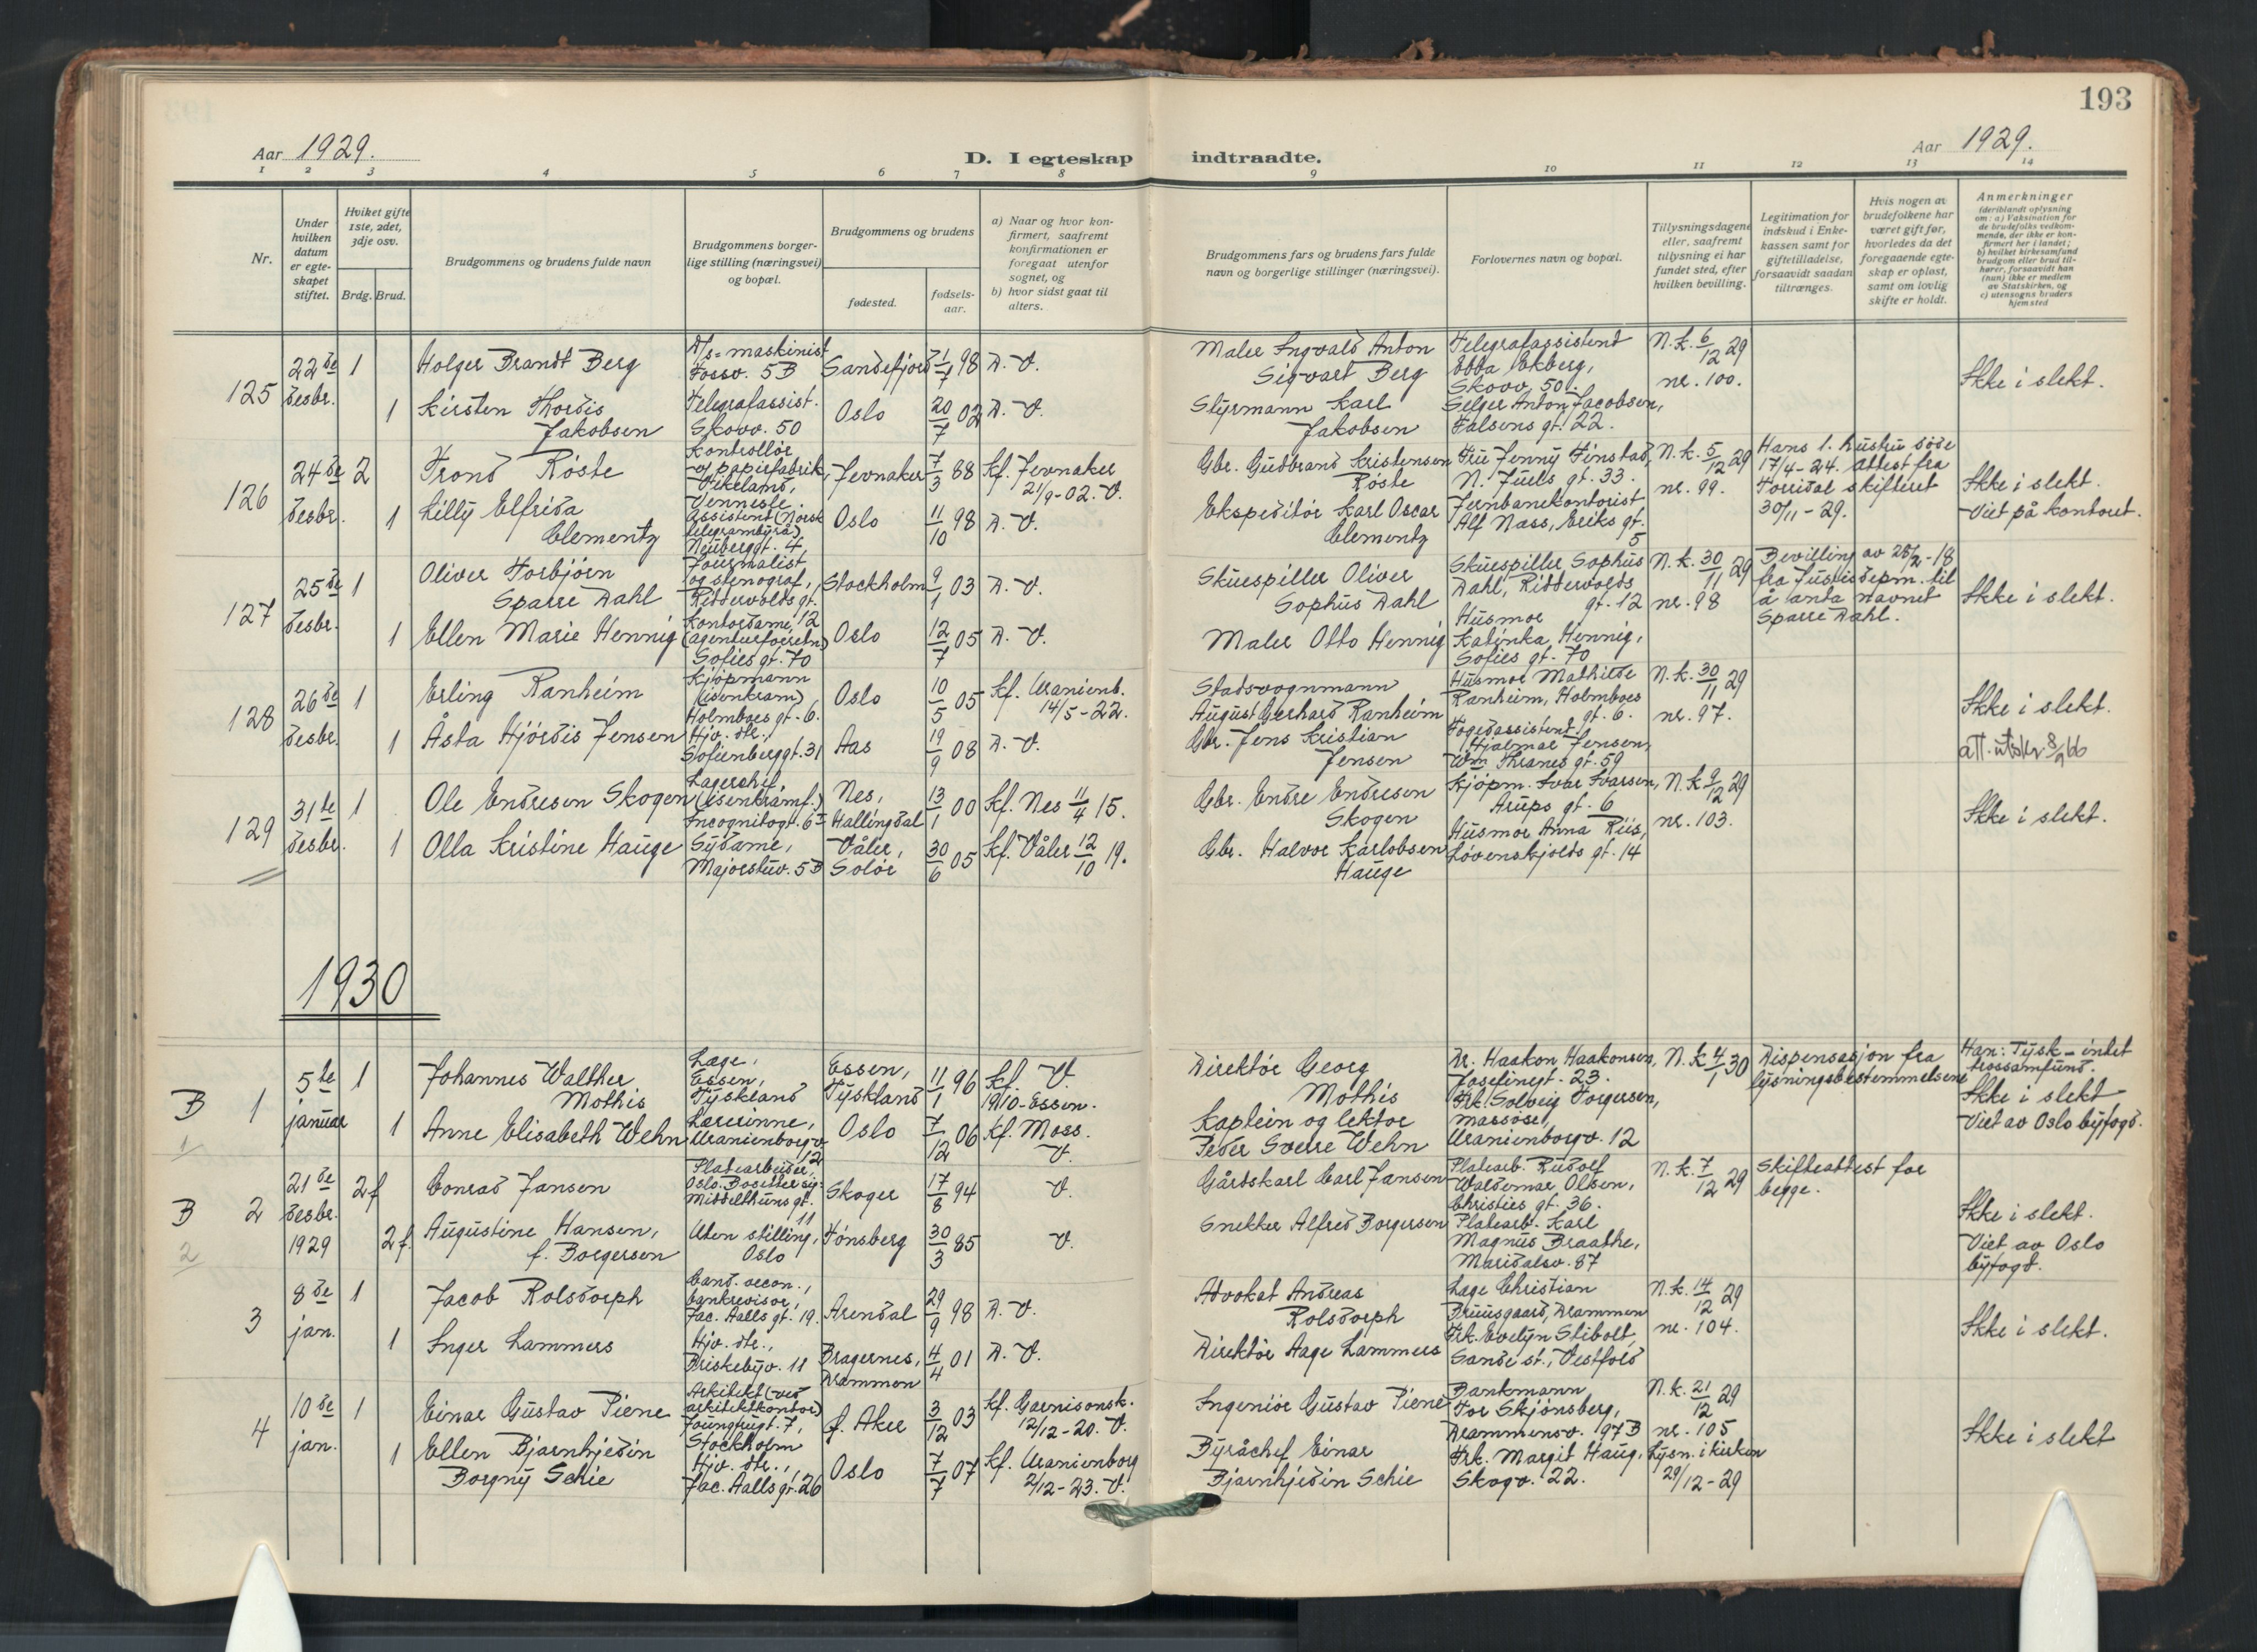 193
Aar 1929.
D. I egteskap indtraadte.
Aar 1929.
1 2 3 4 5 6 7 8 9 10 11 12 13 14
Nr.
Under hvilken datum er egte-skapet stiftet.
Hviket gifte 1ste, 2det, 3dje osv.
Brdg. Brud.
Brudgommens og brudens fulde navn
Brudgommens borger-lige stilling (næringsvei) og bopæl.
Brudgommens og brudens
fødested.
fødsels-aar.
a) Naar og hvor kon-firmert, saafremt konfirmationen er foregaat utenfor sognet, og
b) hvor sidst gaat til alters.
Brudgommens fars og brudens fars fulde navn og borgerlige stillinger (næringsvei).
Forlovernes navn og bopæl.
Tillysningsdagene eller, saafremt tillysning ei har fundet sted, efter hvilken bevilling.
Legitimation for indskud i Enke-kassen samt for giftetilladelse, forsaavidt saadan tiltrænges.
Hvis nogen av brudefolkene har været gift før, hvorledes da det foregaaende egte-skap er opløst, samt om lovlig skifte er holdt.
Anmerkninger
(deriblandt oplysning om: a) Vaksination for de brudefolks vedkom-mende, der ikke er kon-firmert her i landet; b) hvilket kirkesamfund brudgom eller brud til-hører, forsaavidt han (hun) ikke er medlem av Statskirken, og c) utensogns bruders hjemsted
125
22de desbr.
1
Holger Brandt Berg
D/s=maskinist
Fossv. 5B
Sandefjord
21/7 98
D. V.
Maler Ingvald Anton
Sigvart Berg
Telegrafassistent
Ebba Ekberg,
Skovv. 50.
N.k. 6/12 29
nr. 100.
Ikke i slekt.
1
Kirsten Thordis
Jakobsen
Telegrafassist.
Skovv. 50
Oslo
20/7 02
D. V.
Styrmann Karl
Jakobsen
Selger Anton Jacobsen,
Falsens gt. 22.
126
24de desbr.
2
Trond Røste
Kontrollør
v/ papirfabrik,
Vikeland,
Vennesla.
Jevnaker
7/3 88
Kf. Jevnaker
21/9-02. V.
Gbr. Gudbrand Kristensen
Røste
Fru Jenny Finstad,
N. Juels gt. 33.
N.k. 5/12 29
nr. 99.
Hans 1. hustru døde
17/4-24. Attest fra
Torridal skifterett
30/11-29.
Ikke i slekt.
Viet på kontoret.
1
Lilly Elfrida
Clementz
Assistent (Norsk
telegrambyrå)
Neuberggt. 4,
Oslo
11/10 98
D. V.
Ekspeditør Karl Oscar
Clementz
Jernbanekontorist
Alf Næss, Eriks gt.
5
127
25de desbr.
1
Oliver Torbjørn
Sparre Dahl
Journalist
og stenograf,
Riddervolds gt.
12
Stockholm
9/1 03
D. V.
Skuespiller Oliver
Sophus Dahl
Skuespiller Sophus
Dahl, Riddervolds
gt. 12
N.k. 30/11 29
nr. 98
Bevilling av 28/2-18
fra Justisdepm. til
å anta navnet
Sparre Dahl.
Ikke i slekt.
1
Ellen Marie Hennig
Kontordame,
(agenturforretn.)
Sofies gt. 70
Oslo
12/7 05
D. V.
Maler Otto Hennig
Husmor
Katinka Hennig,
Sofies gt. 70
128
26de desbr.
1
Erling Ranheim
Kjøpmann
(isenkram)
Holmboes gt. 6.
Oslo
10/5 05
Kf. Uranienb.
14/5-22.
Stadsvognmann
August Gerhard Ranheim
Husmor Mathilde
Ranheim, Holmboes
gt. 6.
N.k. 30/11 29
nr. 97.
Ikke i slekt.
1
Åsta Hjördis Jensen
Hjv. dtr.,
Sofienberggt. 31
Aas
19/9 08
D. V.
Gbr. Jens Kristian
Jensen
Fogedassistent
Hjalmar Jensen,
Wm Thranes gt. 59
att. utskr. 8/2 66
129
31te desbr.
1
Ole Endresen Skogen
Lagerchef,
(isenkramf.)
Incognitogt. 6 II
Nes,
Hallingdal
13/1 00
Kf. Nes 11/4 15.
Gbr. Endre Endresen
Skogen
Kjøpm. Ivar Ivarsen,
Arups gt. 6
N.k. 9/12 29
nr. 103.
Ikke i slekt.
1
Olla Kristine Hauge
Sydame,
Majorstuv. 5B
Våler,
Solør
30/6 05
Kf. Våler 12/10 19.
Gbr. Halvor Karlobsen
Hauge
Husmor Anna Riis,
Løvenskjolds gt. 14
1930
B 1
1
5te januar
1
Johannes Walther
Mothis
Læge,
Essen,
Tyskland
Essen,
Tyskland
11/1 96
Kf. V.
1910-Essen.
Direktør Georg
Mothis
Dr. Haakon Haakonsen,
Josefinegt. 23.
N.k. 4/1 30
Dispensasjon fra
lysningsbestemmelsene
Han: Tysk - intet
trossamfund.
Ikke i slekt
Viet av Oslo byfogd.
1
Anne Elisabeth Wehn
Lærerinne,
Uranienborgv.
12
Oslo
7/12 06
Kf. Moss.
V.
Kaptein og lektor
Peder Sverre Wehn
Frk. Solveig Torgersen,
massøse,
Uranienborgv. 12
B 2
2
21de desbr. 1929
2 f
Conrad Jansen
Platearbeider,
Oslo. Bosetter sig:
Middelthuns gt.
11
Skoger
17/8 94
V.
Gårdskarl Carl Jansen
Platearb. Rudolf
Waldemar Olsen,
Christies gt. 36.
N.k. 7/12 29
Skifteattest for
begge.
Ikke i slekt.
Viet av Oslo
byfogd.
2 f.
Augustine Hansen,
f. Borgersen
Uten stilling,
Oslo
Tønsberg
30/3 85
V.
Snekker Alfred Borgersen
Platearb. Karl
Magnus Braathe,
Maridalsv. 87
3
8de jan.
1
Jacob Rolsdorph
Cand. oecon.,
bankrevisor,
Jac. Aalls gt. 19.
Arendal
29/9 98
D. V.
Advokat Andreas
Rolsdorph
Læge Christian
Bruusgaard, Drammen
N.k. 14/12 29
nr. 104.
Ikke i slekt.
1
Inger Lammers
Hjv. dtr.,
Briskebyv. 11
Bragernes,
Drammen
4/4 01
D. V.
Direktør Aage Lammers
Frk. Evelyn Stibolt,
Sande st., Vestfold
4
10de jan.
1
Einar Gustav Piene
Arkitekt (ved
arkitektkontor)
Stockholm
f. Aker
3/12 03
Kf. Garnisonsk.
12/12-20. V.
Ingeniør Gustav Piene
Bankmann
Tor Skjønsberg,
Drammensv. 97B
N.k. 21/12 29
nr. 105
Ikke i slekt
1
Ellen Bjarnhjedin
Borgny Schie
Hjv. dtr.,
Jac. Aalls gt. 26
Oslo
7/7 07
Kf. Uranienborg
2/12-23. V.
Byråchef Einar
Bjarnhjedin Schie
Frk. Margit Haug,
Skogv. 22.
Lysn. i kirken
29/12-29